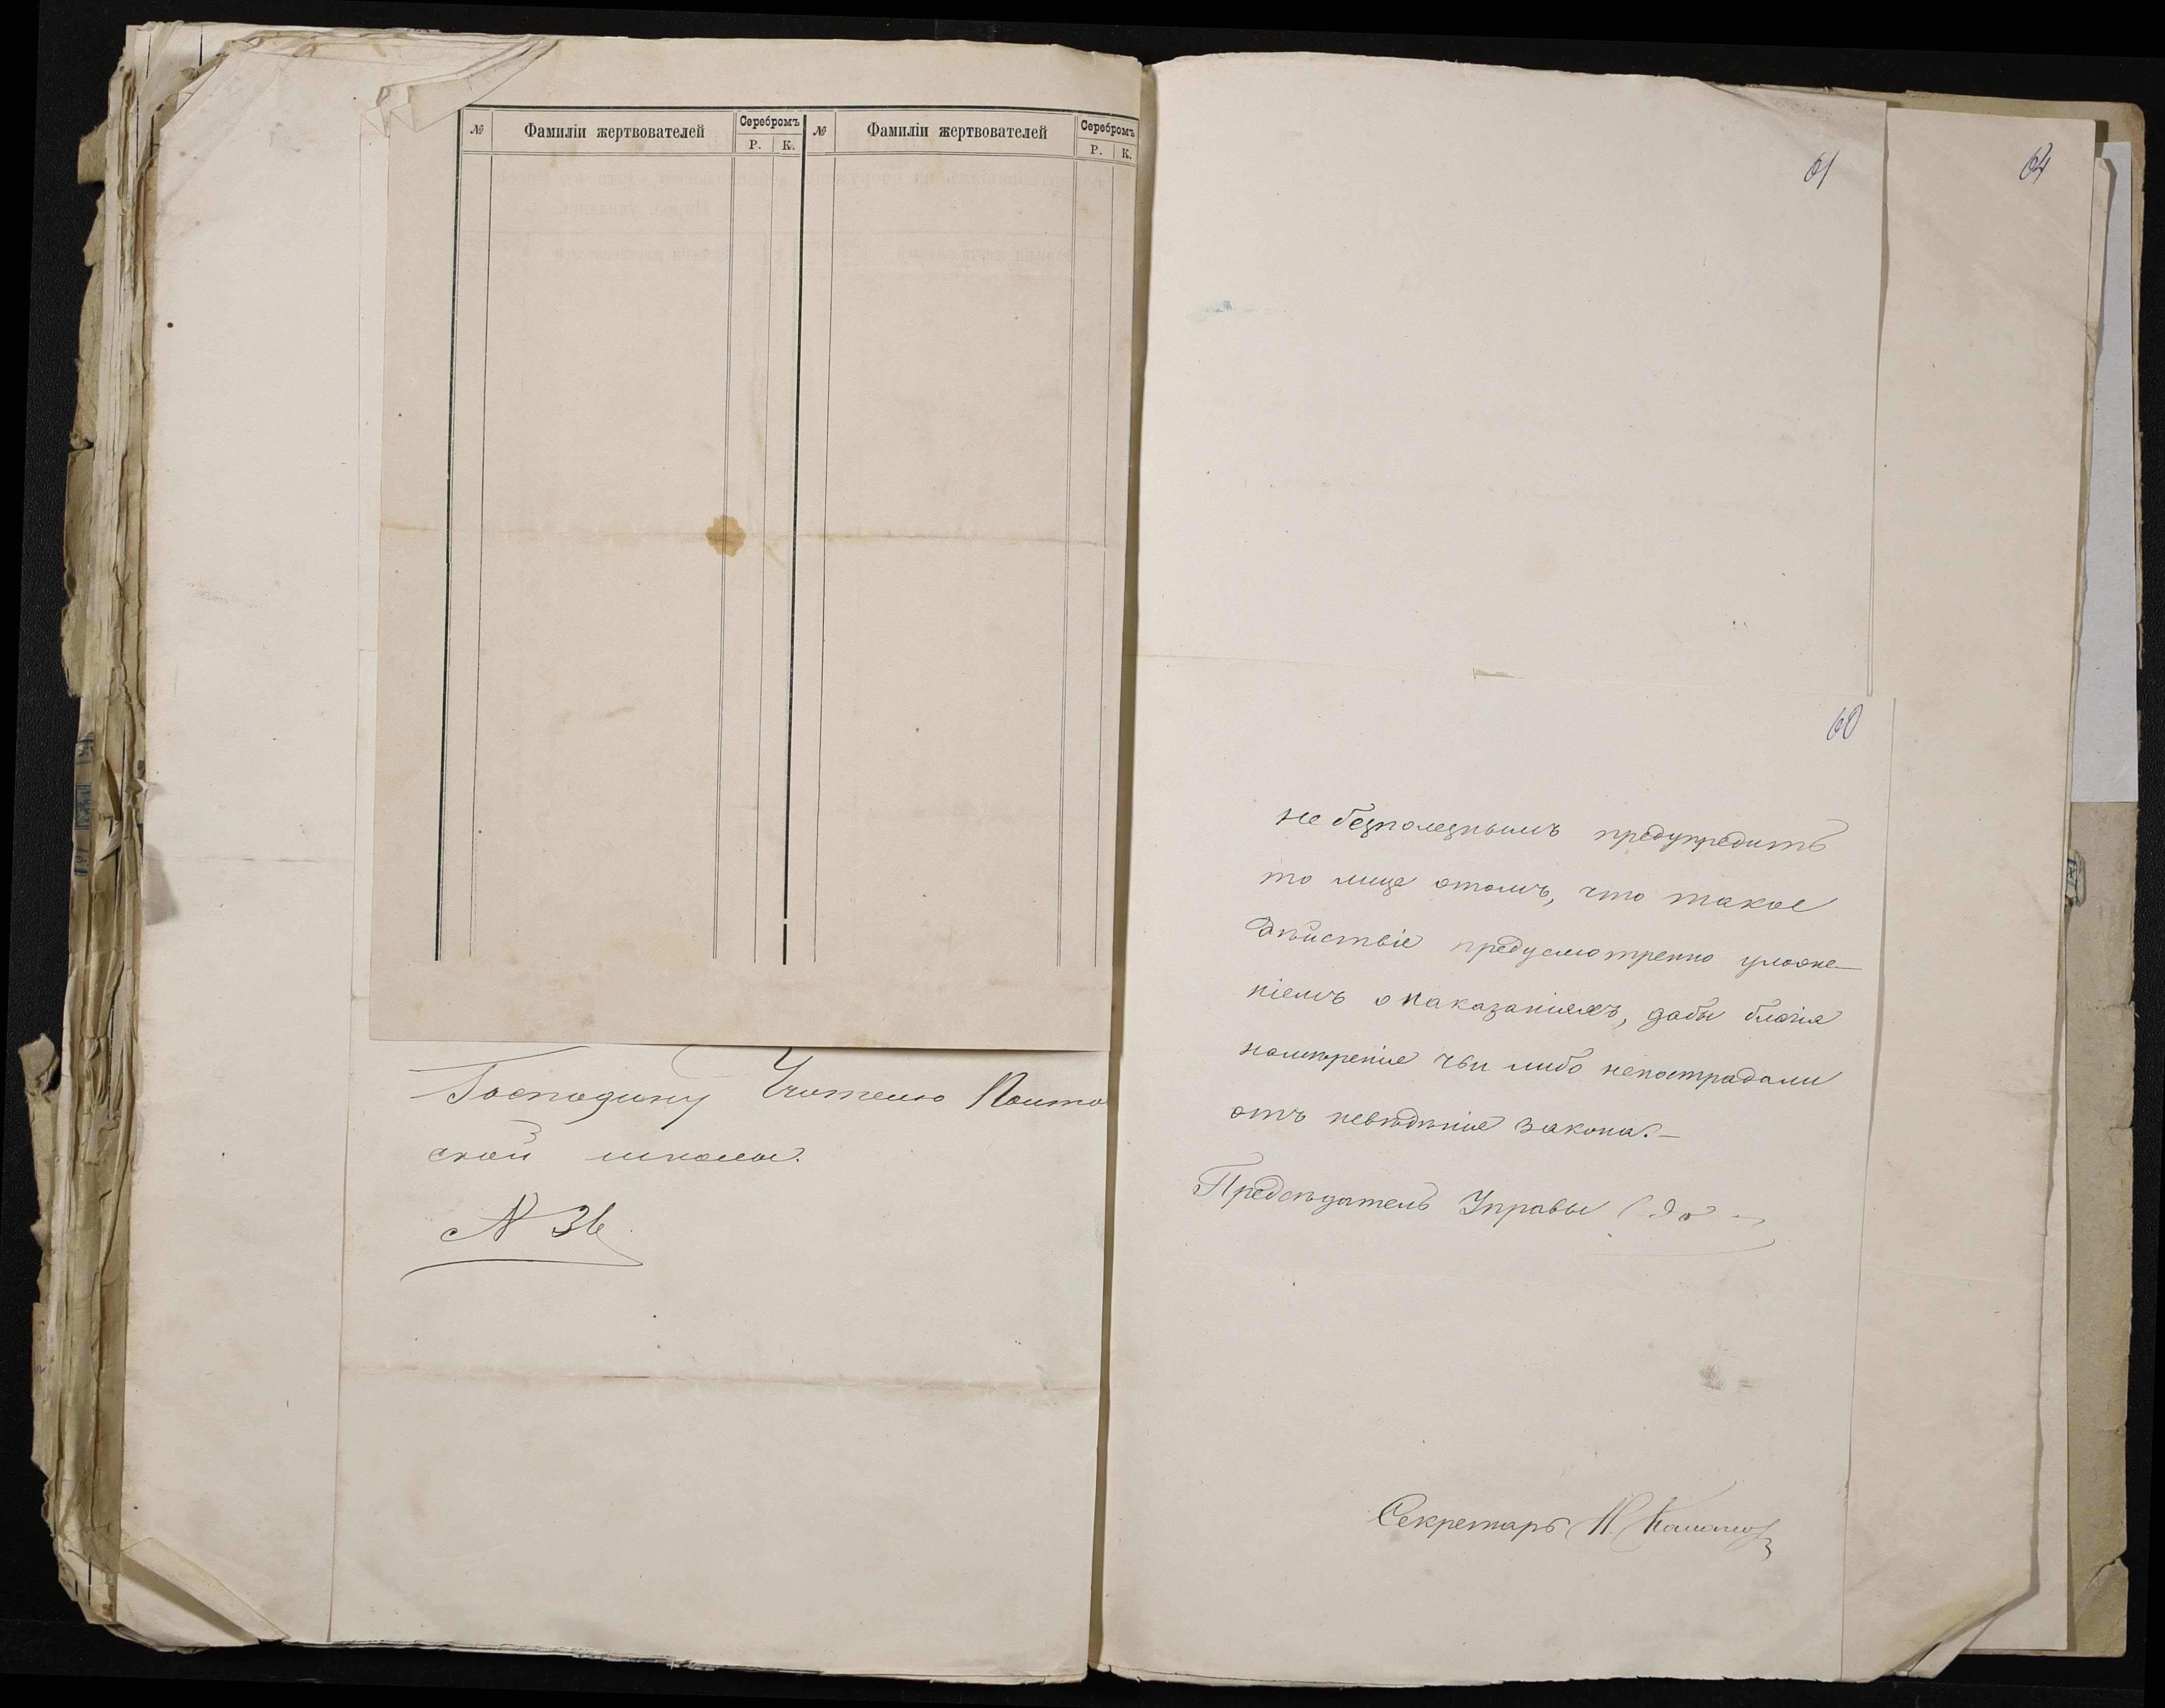 № Фамиліи жертвователей Серебромъ Р. К. № Фамиліи жертвователей Серебромъ Р. К.
Господину Учителю
ской школы.
N 36
61
64
60
не безполезнымъ предупредить
то лице отомъ, что такое
дѣйствіе предусмотренно уложе-
ніемъ о наказаніяхъ, дабы благія
намѣренія чьи либо непострадали
отъ невѣдѣнія закона.-
Предсѣдатель Управы
Секретарь